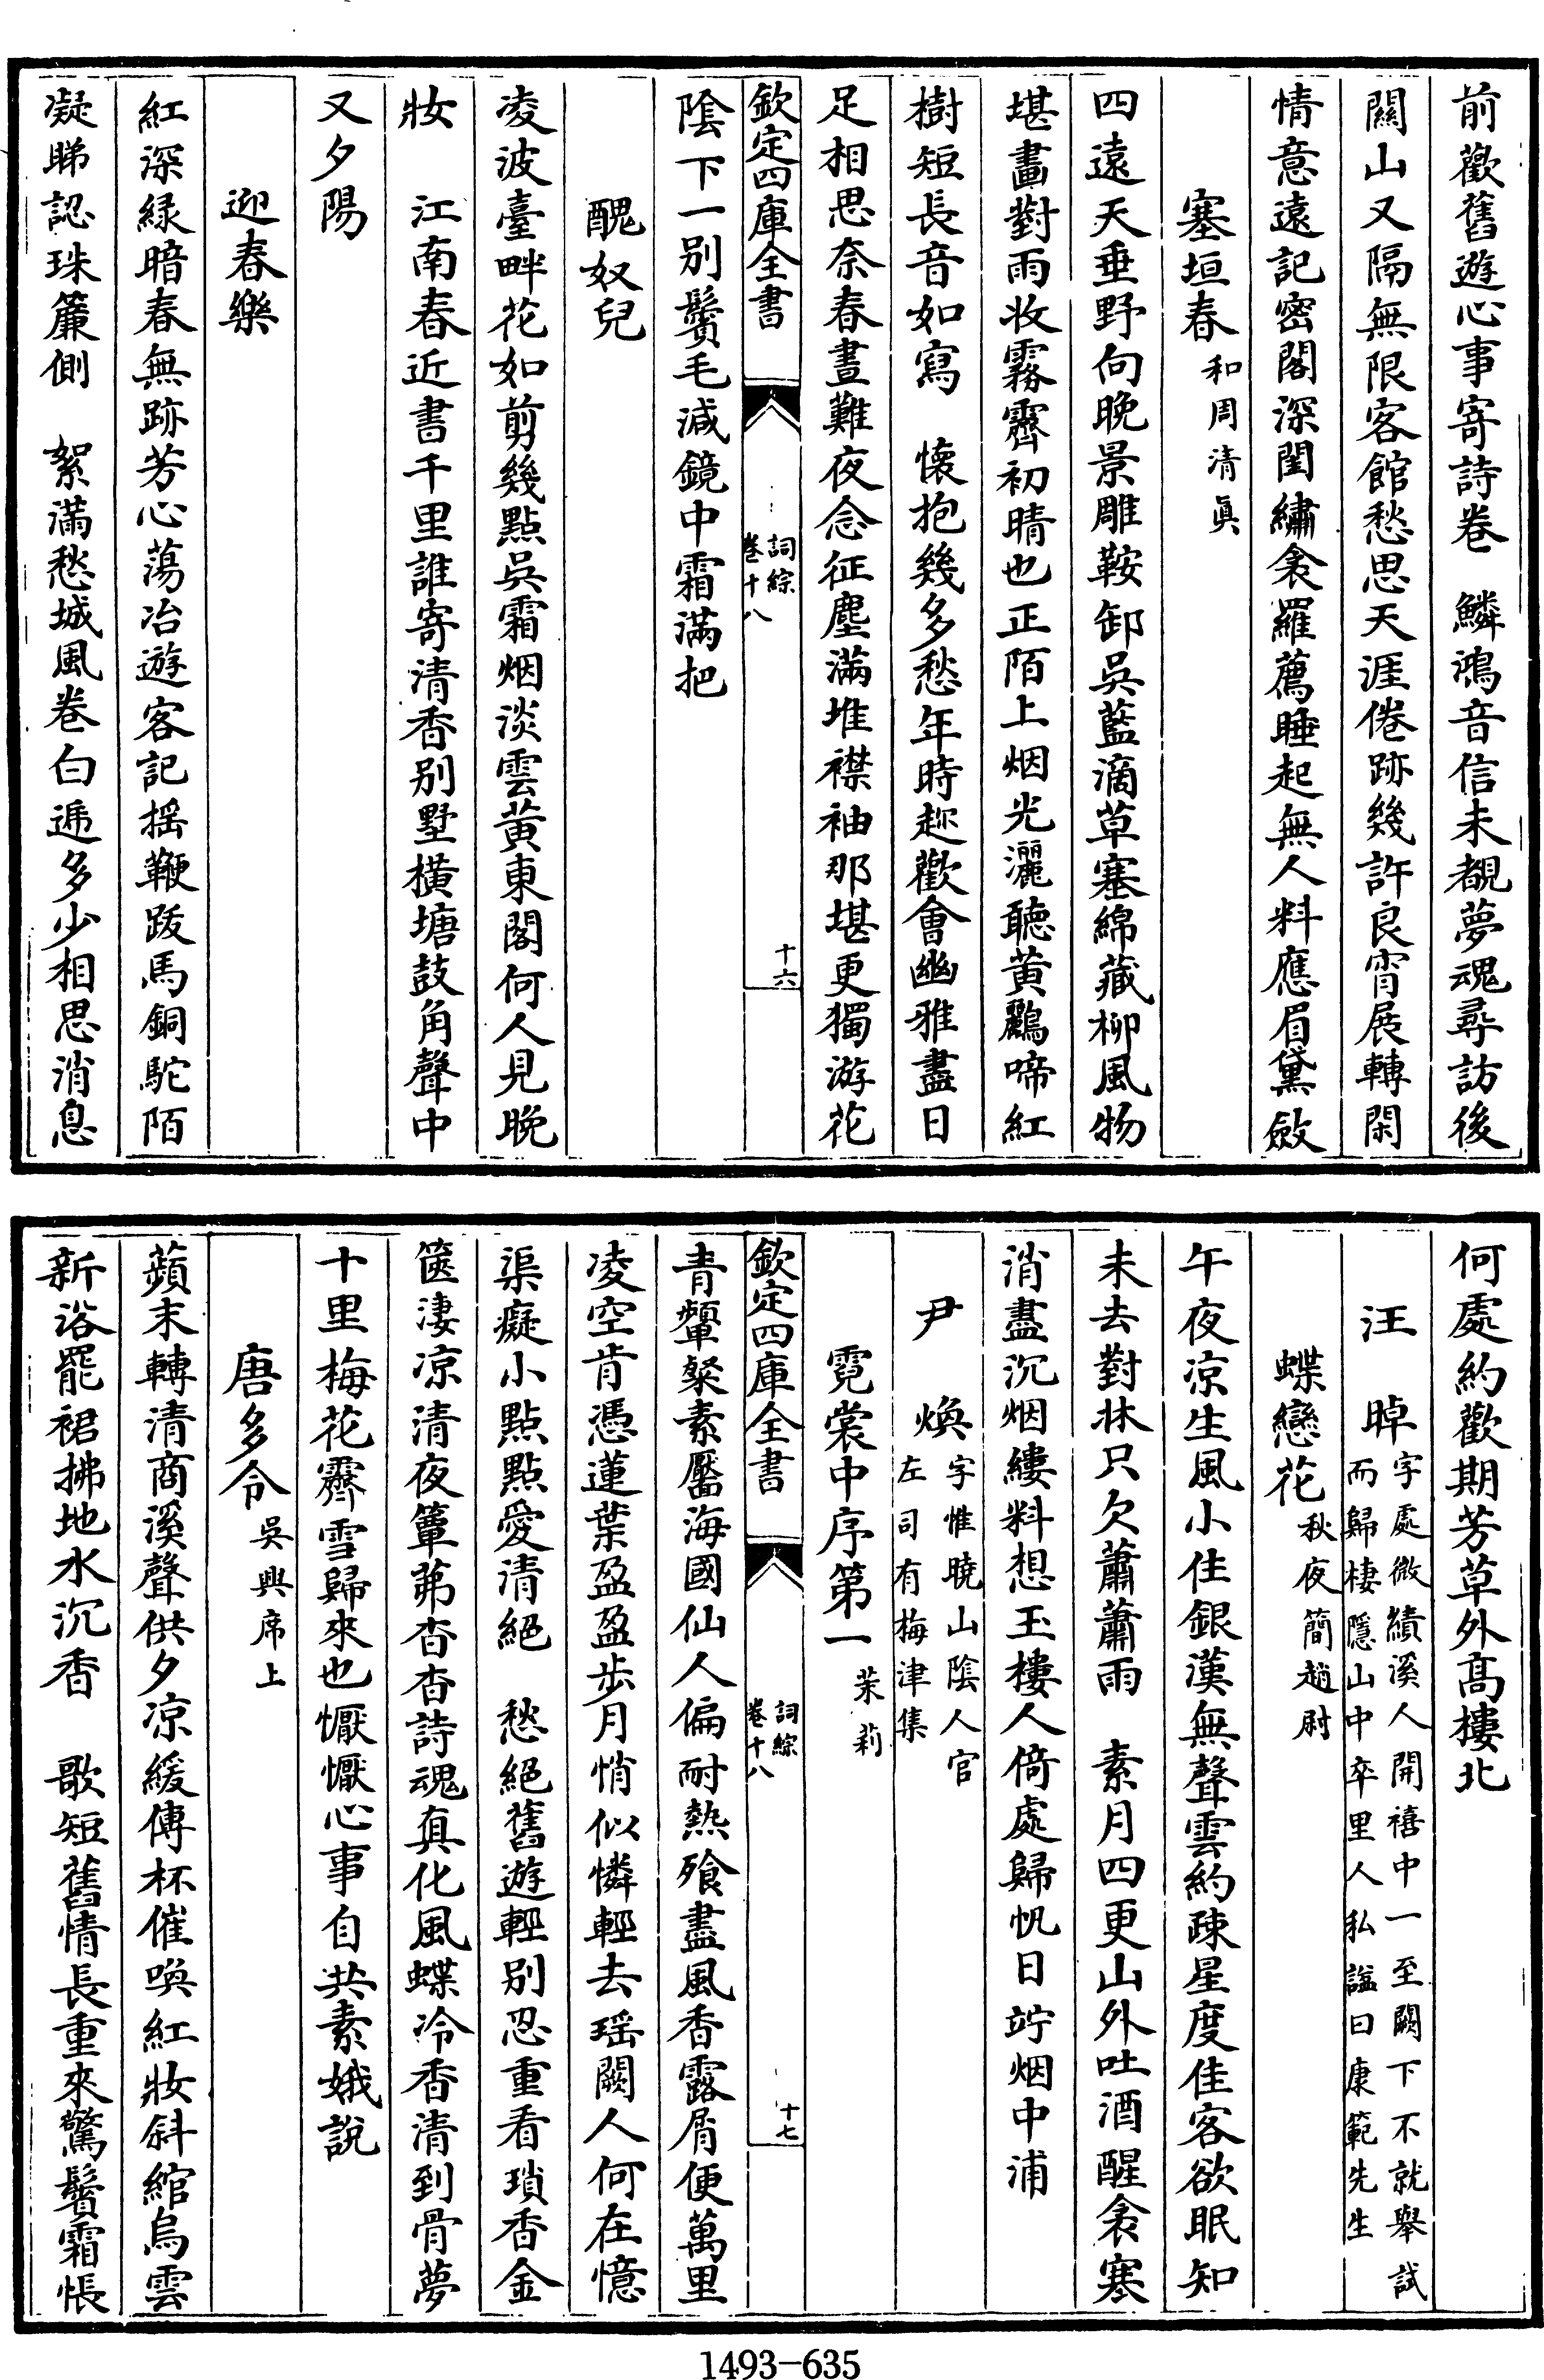 前歡舊遊心事寄詩卷　鱗鴻音信未覩夢魂尋訪後
關山又隔無限客館愁思天涯倦跡幾許良宵展轉閑
情意遠記密閣深閨繡衾羅薦睡起無人料應眉黛斂
塞垣春和周清眞
四遠天垂野向晚景雕鞍卸吳藍滴草塞綿藏柳風物
堪畫對雨收霧霽初晴也正陌上烟光灑聽黃鸝啼紅
樹短長音如寫　懷抱幾多愁年時趂歡會幽雅盡日
足相思奈春晝難夜念征塵滿堆襟袖那堪更獨游花
欽定四庫全書
詞綜
卷十八
十六
陰下一别鬢毛減鏡中霜滿把
醜奴兒
凌波臺畔花如剪幾點吳霜烟淡雲黃東閣何人見晚
妝　江南春近書千里誰寄清香别墅橫塘鼓角聲中
又夕陽
迎春樂
紅深綠暗春無跡芳心蕩冶遊客記揺鞭跋馬銅駝陌
凝睇認珠簾側　絮滿愁城風卷白遞多少相思消息
何處約歡期芳草外髙樓北
汪　晫字處微績溪人開禧中一至闕下不就舉試
而歸棲隱山中卒里人私諡曰康範先生
蝶戀花秋夜簡趙尉
午夜凉生風小住銀漢無聲雲約疎星度佳客欲眠知
未去對牀只欠蕭蕭雨　素月四更山外吐酒醒衾寒
消盡沉烟縷料想玉樓人倚處歸帆日竚烟中浦
尹　煥字惟曉山陰人官
左司有梅津集
霓裳中序第一茉莉
欽定四庫全書
詞綜
卷十八
十七
青顰粲素靨海國仙人偏耐熱飱盡風香露屑便萬里
凌空肯憑蓮葉盈盈步月悄似憐輕去瑶闕人何在憶
渠癡小點點愛清絕　愁絕舊遊輕别忍重看瑣香金
篋淒凉清夜簟茀杳杳詩魂真化風蝶冷香清到骨夢
十里梅花霽雪歸來也懨懨心事自共素娥說
唐多令吳興席上
蘋末轉清商溪聲供夕凉緩傳杯催喚紅妝斜綰烏雲
新浴罷裙拂地水沉香　歌短舊情長重來驚鬢霜悵
1493-635